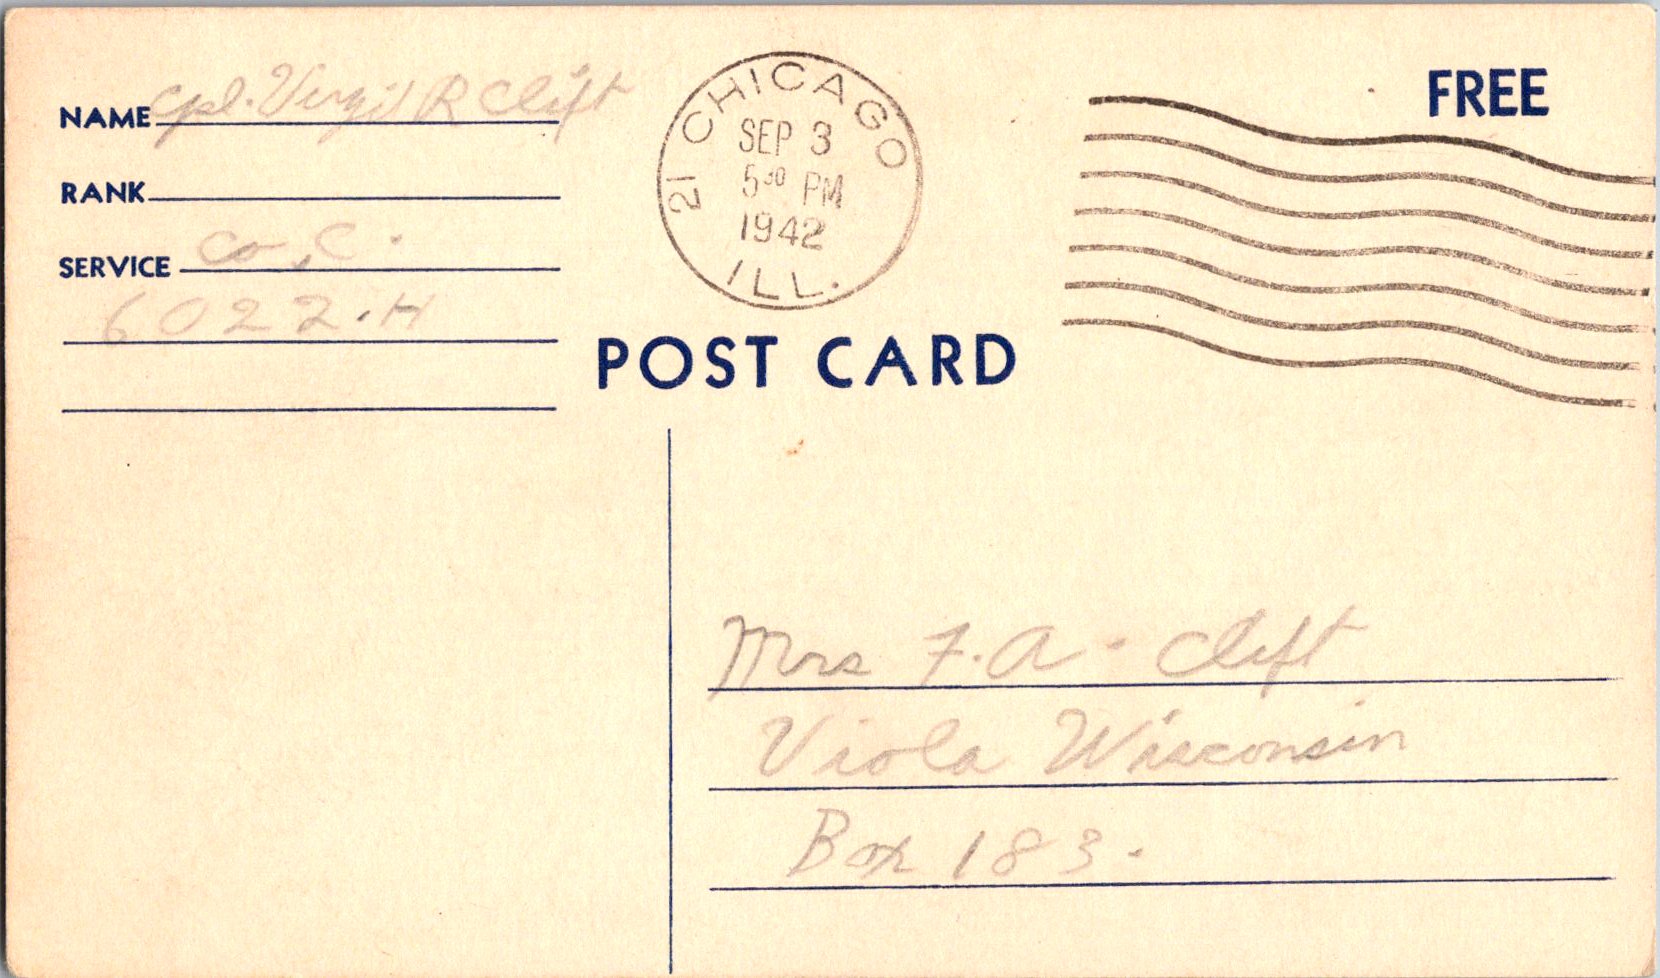 NAME Cpl. Virgil R Clift
RANK
SERVICE Co, C.
6022.H
21 CHICAGO
SEP 3
5 30 PM
1942
ILL.
FREE
POST CARD
Mrs F. A. Clift
Viola Wisconsin
Box 183.